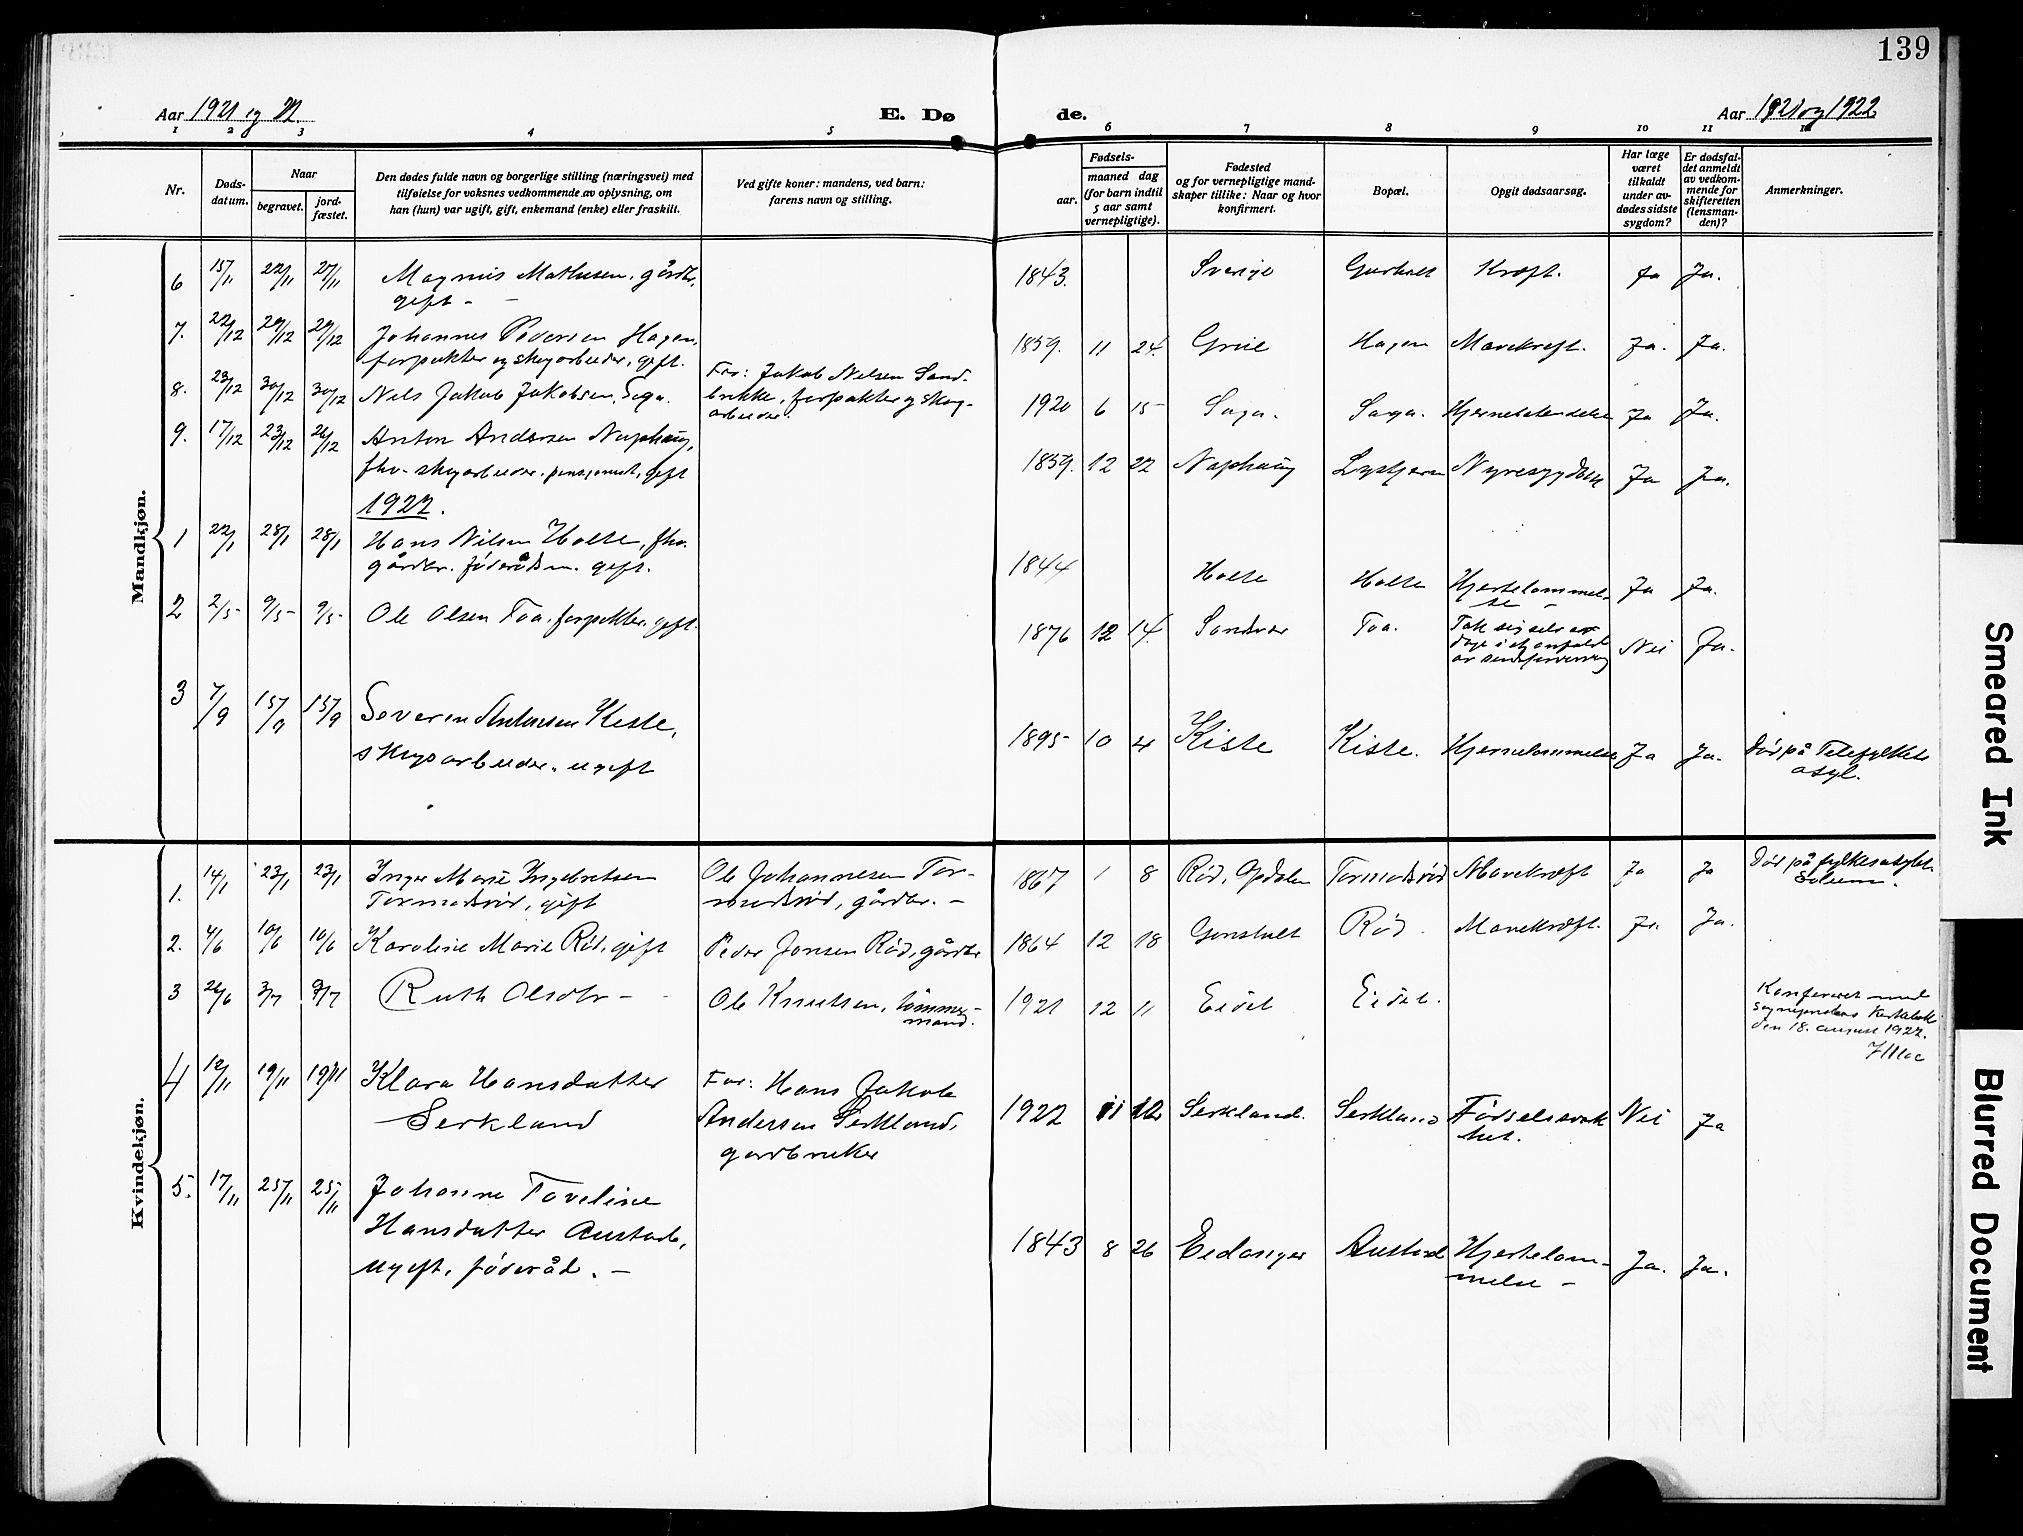 139
Aar 1921 og 22.
E. Dø
de.
Aar 1921 og 1922
1 2 3 4 5 6 7 8 9 10 11 12
Nr.
Døds-
datum.
Naar
begravet.
jord-
fæstet.
Den dødes fulde navn og borgerlige stilling (næringsvei) med
tilføielse for voksnes vedkommende av oplysning, om
han (hun) var ugift, gift, enkemand (enke) eller fraskilt.
Ved gifte koner: mandens, ved barn:
farens navn og stilling.
Fødsels-
aar.
maaned dag
(for barn indtil
5 aar samt
vernepligtige).
Fødested
og for vernepligtige mand-
skaper tillike: Naar og hvor
konfirmert.
Bopæl.
Opgit dødsaarsag.
Har læge
været
tilkaldt
under av-
dødes sidste
sygdom?
Er dødsfal-
det anmeldt
av vedkom-
mende for
skifteretten
(lensman-
den)?
Anmerkninger.
Mandkjøn.
6 15/11 22/11 27/11 Magnus Mathisen, gårdbr, 1843. Sverige Kræft. Ja Ja.
gift -
7. 22/12 29/12 29/12 Johannes Pedersen Hagen, 1859. 11 24. Grue Hagen Mavekreft. Ja. Ja.
forpakter og skogarbeider, gift.
8. 23/12 30/12 30/12 Nils Jakob Jakobsen, Saga. Far: Jakob Nilsen Sand-
brekke, forpakter og skog-
arbeider.
1920 6 15 Saga. Saga. Hjernebetendelse Ja Ja.
9. 17/12 23/12 26/12 Anton Andersen Naphaug, 1859. 12 22 Naphaug Lystjern Nyresygdom Ja Ja.
fhv. skogarbeider. pensjonert, gift
1922.
1 22/1 28/1 28/1 Hans Nilsen Holte, fhv.
gårdbr. føderådsm. gift.
1844 Holte Holte Hjertelammel-
se - Ja Ja.
2 2/5 9/5 9/5 Ole Olsen Toa, forpakter, gift. 1876 12 14. Sandsvær Toa.
Tok sig selv av
dage i et anfald
av sindsforvirring Nei Ja.
3 7/9 15/9 15/9 Severin Antonsen Kiste,
skogsarbeider. ugift
1895 10 4 Kiste Kiste. Hjernelammelse Ja Ja. Død på Telefylkets
asyl.
Kvindekjøn.
1. 14/1 23/1 23/1 Inger Marie Ingebretsen Ole Johannesen Tor-
Tormodsrød, gift modsrød, gårdbr. -
1867 1 8 Rød, Opdalen Tormodsrød Mavekræft Ja Ja Død på fylkesasylet
Solum.
2. 4/6 10/6 10/6 Karoline Marie Rød, gift Peder Jonsen Rød, gårdbr 1864 12 18 Gonsholt Rød. Mavekræft. Ja. Ja.
3 26/6 3/7 9/7 Ruth Olsdtr - Ole Knutsen, tømmer-
mand.
1921 12 11 Eidet Eidet.
Konferert med
sogneprestens kirkebok
den 18. august 1922.
4 12/11 19/11 19/11 Klara Hansdatter Far: Hans Jakob
Serkland Andersen Serkland,
gardbruker
1922 11 12 Serkland. Serkland Fødselssvak
het. Nei Ja
5. 17/11 25/11 25/11 Johanne Toveline
Hansdatter Austad,
ugift, føderåd. -
1843 8 26 Eidanger Austad Hjertelam-
melse - Ja. Ja.
Smeared Ink
Blurred Document